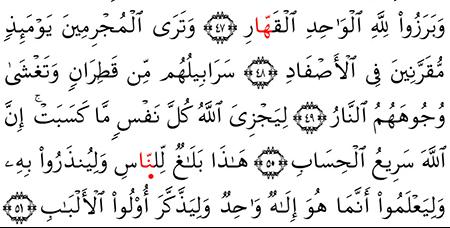 وَبَرَزُوا۟ لِلَّهِ ٱلْوَٰحِدِ ٱلْقَهَّارِ ﴿٤٧﴾ وَتَرَى ٱلْمُجْرِمِينَ يَوْمَئِذٍۢ
مُّقَرَّنِينَ فِى ٱلْأَصْفَادِ ﴿٤٨﴾ سَرَابِيلُهُم مِّن قَطِرَانٍۢ وَتَغْشَىٰ
وُجُوهَهُمُ ٱلنَّارُ ﴿٤٩﴾ لِيَجْزِىَ ٱللَّهُ كُلَّ نَفْسٍۢ مَّا كَسَبَتْ ۚ إِنَّ
ٱللَّهَ سَرِيعُ ٱلْحِسَابِ ﴿٥٠﴾ هَٰذَا بَلَٰغٌۭ لِّلنَّاسِ وَلِيُنذَرُوا۟ بِهِۦ
وَلِيَعْلَمُوٓا۟ أَنَّمَا هُوَ إِلَٰهٌۭ وَٰحِدٌۭ وَلِيَذَّكَّرَ أُو۟لُوا۟ ٱلْأَلْبَٰبِ ﴿٥١﴾